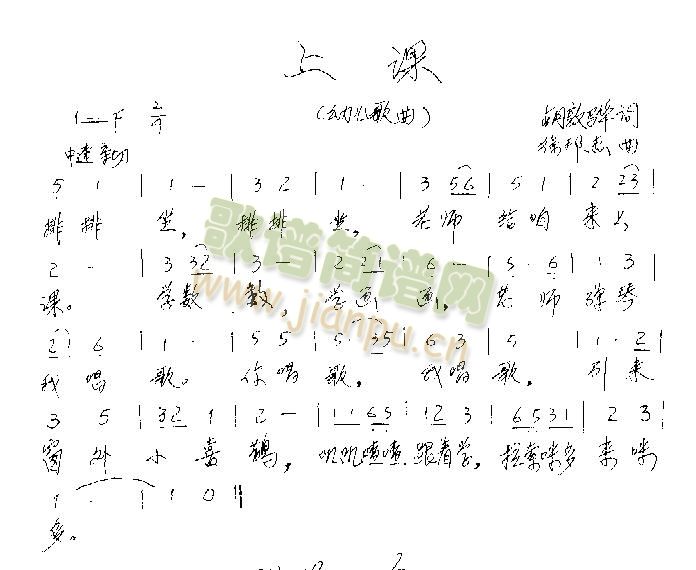 上课
1=F 2/4 (幼儿歌曲) 词
中速 亲切 徐邦杰 曲
5 1 | 1 - | 3 2 | 1 · | 3 56 | 5 1 | 2 23 |
排排 坐, 排排 坐, 老师 给咱 来上
2 - | 3 32 | 3 - | 2 21 | 6 - | 5 · 6 | 1 3 |
课。 学数 数, 学画 画, 老师 弹琴
2 6 | 1 · | 5 5 | 5 · 35 | 6 3 | 5 | 1 · 2 |
我唱 歌。 你唱 歌, 我唱 歌, 引来
3 5 | 32 1 | 2 - | 1165 | 12 3 | 6531 | 2 3 |
窗外 小喜 鹊, 叽叽喳喳 跟着学, 拉索咪多 来咪
1 · | 1 0 ||
多。
歌谱简谱网
www.jianpu.cn